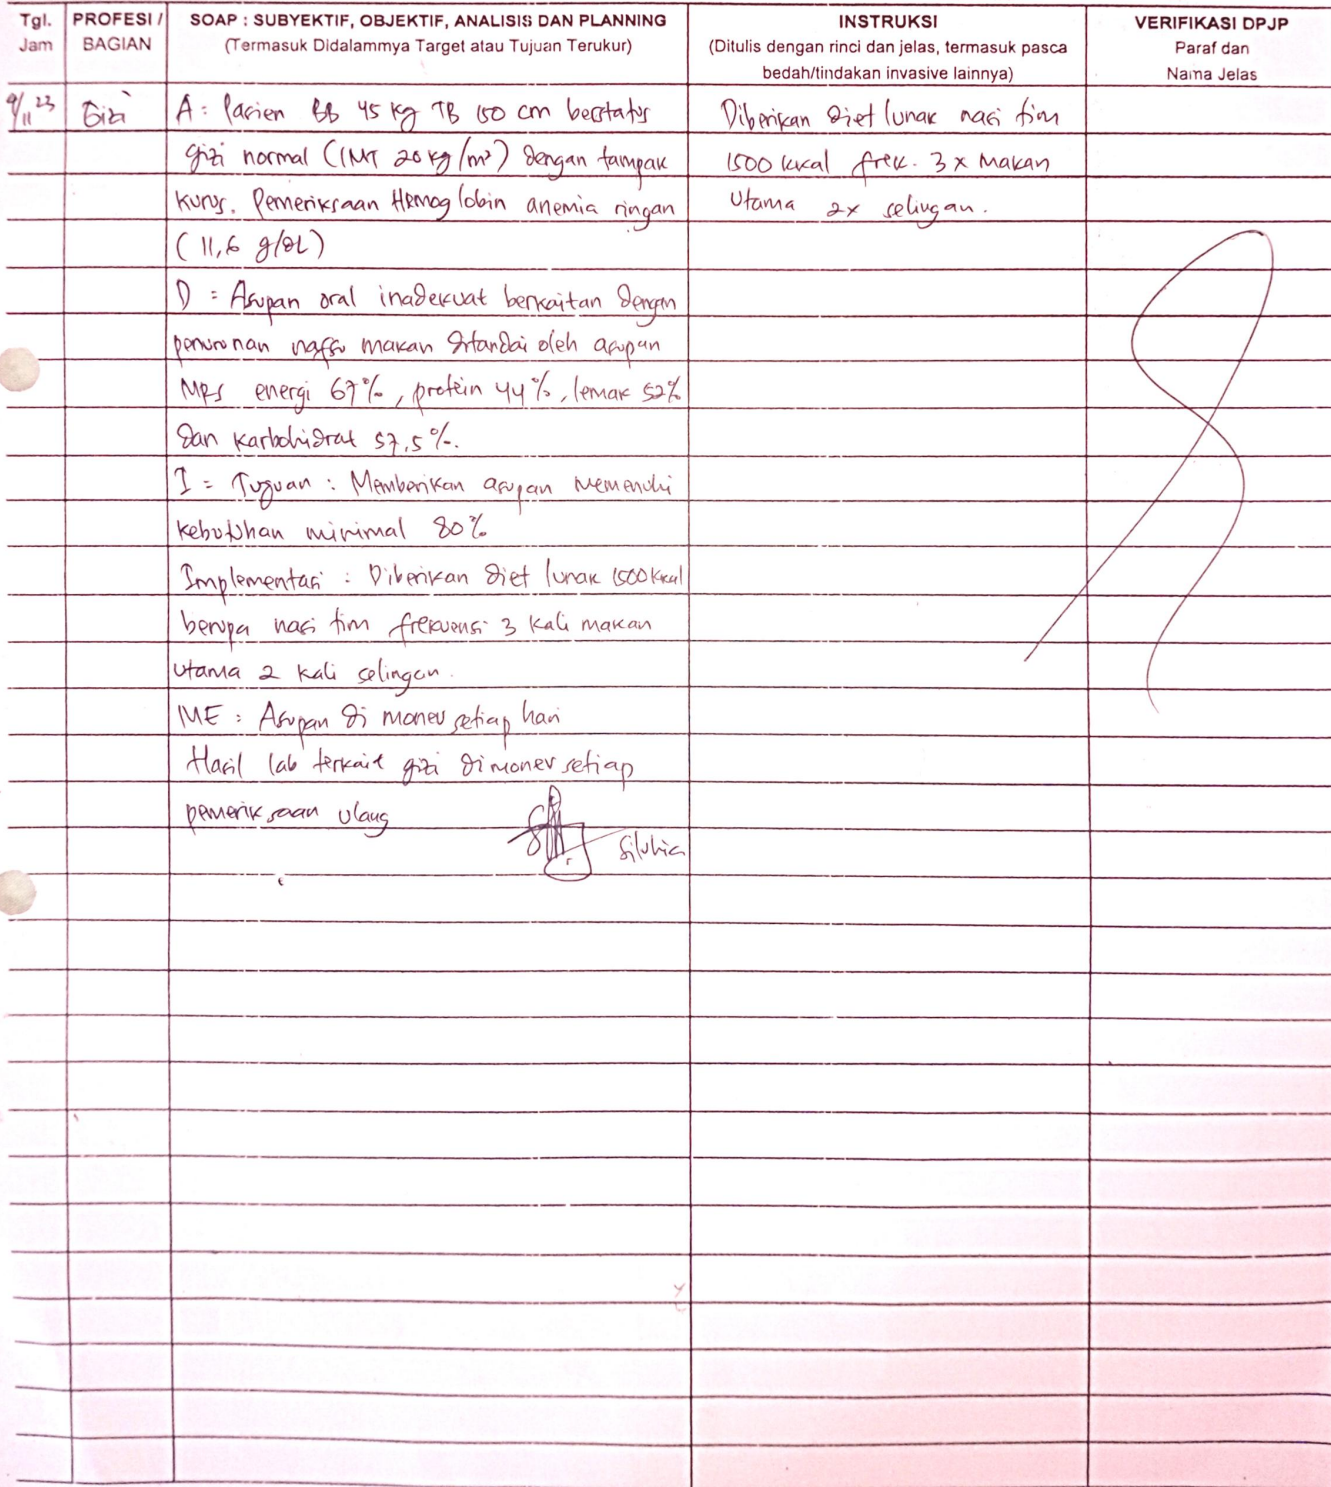 Tgl. Jam
PROFESI / BAGIAN
SOAP : SUBYEKTIF, OBJEKTIF, ANALISIS DAN PLANNING
(Termasuk Didalammya Target atau Tujuan Terukur)
INSTRUKSI
(Ditulis dengan rinci dan jelas, termasuk pasca
bedah/tindakan invasive lainnya)
VERIFIKASI DPJP
Paraf dan
Nama Jelas
9/11 23
Gizi
A : Pasien BB 45 kg TB 150 cm berstatus
gizi normal (IMT 20 kg/m²) dengan tampak
kurus. Pemeriksaan Hemoglobin anemia ringan
(11,6 g/dL)
D = Asupan oral inadekuat berkaitan dengan
penurunan nafsu makan ditandai oleh asupan
MRS energi 67%, protein 44%, lemak 52%
dan karbohidrat 57,5%.
I = Tujuan : Memberikan asupan memenuhi
kebutuhan minimal 80%
Implementasi : Diberikan diet lunak 1500 kkal
berupa nasi tim frekuensi 3 kali makan
utama 2 kali selingan.
ME : Asupan di monev setiap hari
Hasil lab terkait gizi dimonev setiap
pemeriksaan ulang
Diberikan diet lunak nasi tim
1500 kkal frek. 3 x makan
utama 2x selingan.